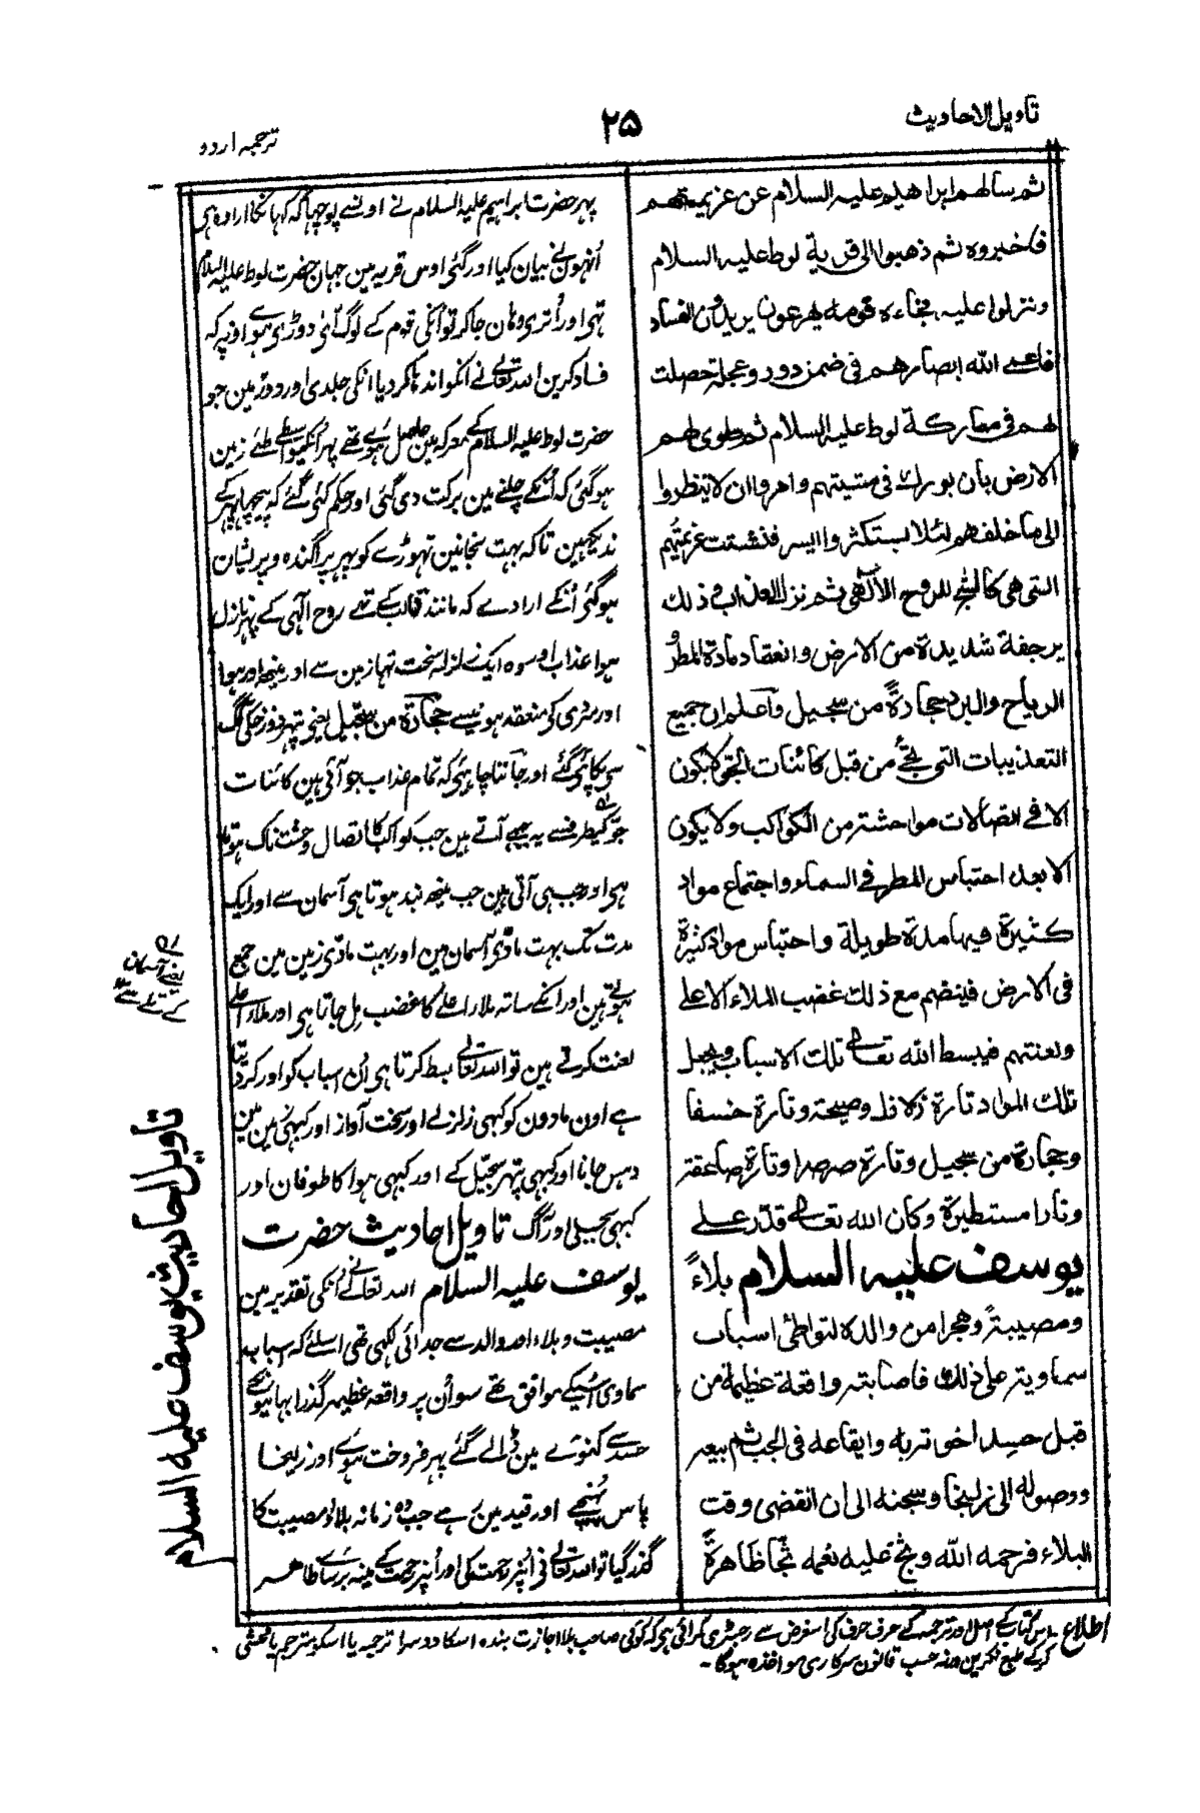 تاویل الاحادیث
۲۵
ترجمہ اردو
ثم سالهم ابراهیم علیہ السلام عن عزیمتهم
فاخبروہ ثم ذهبوا الی قریة لوط علیہ السلام
ونزلوا علیہ فجاءہ قومہ یهرعون یریدون الفساد
فاعمے اللہ ابصارهم فی ضمن دور وعجلة حصلت
لهم فی معارکة لوط علیہ السلام ثم طوی لهم
الارض بان بورك فی مشیتهم وامروا ان لا ینظروا
الی ما خلفهم لئلا یستکثروا الیسر فتشتت عزیمتهم
التی هی کالشبح للروح الالٰهی ثم نزل العذاب وذلك
برجفة شدیدة من الارض وانعقاد مادة المطر و
الریاح والبرد حجارةً من سجیل واعلم ان جمیع
التعذیبات التی تجئ من قبل کائنات الجو لا یکون
الا فی اتصالات موحشتہ من الکواکب ولا یکون
الا بعد احتباس المطر فی السماء واجتماع مواد
کثیرة فیها مدة طویلة واحتباس مواد کثیرة
فی الارض فینضم مع ذلك غضب الملاء الاعلے
ولعنتهم فیبسط اللہ تعالے تلك الاسباب ویجعل
تلك المواد تارة زلازل وصیحة وتارة خسفا
وحجارة من سجیل وتارة صرصرا وتارة صاعقة
ونارا مستطیرة وکان اللہ تعالے قدّر علے
یوسف علیہ السلام بلاءً
ومصیبةً وهجرا من والدہ لتواطئ اسباب
سماویة علی ذلك فاصابتہ واقعة عظیمة من
قبل حسد اخوتہ بہ وایقاعہ فی الجب ثم بیعہ
ووصولہ الی زلیخا وسجنہ الی ان انقضی وقت
البلاء فرحمہ اللہ وثج علیہ نعمہ ثجّا ظاهرةً
پہر حضرت ابراہیم علیہ السلام نے اونسے پوچہا کہ کہانکا ارادہ ہی
اُنہوں نے بیان کیا اور گئی اوس قریہ مین جہان حضرت لوط علیہ السلام
تہی اور اُتری وہان جاکر تو اُنکی قوم کے لوگ آئی دوڑی ہوے اور یہ کہ
فساد کرین اللہ تعالے نے انکو اندہا کر دیا انکی جلدی اور دوڑ مین جو
حضرت لوط علیہ السلام کے معرکہ مین حاصل ہوے تھے پہر اُنکیواسطے طے ہوئے زمین
ہوگئی کہ اُنکے چلنے مین برکت دی گئی اور حکم کئی گئے کہ پیچہا پہر کے
ندیکہین تاکہ بہت نجانین تہوڑے کو پہر پراگندہ و پریشان
ہوگئی اُنکے ارادے کہ مانند قالب کے تھے روح الٰہی کے پہر نازل
ہوا عذاب اور وہ ایک زلزلہ سخت تہا زمین سے اور مینہہ اور ہوا
اور سردی کو منعقد ہونیسے حجارة من سجیل یعنی پتہر دوزخکی آگ
سے پکائی گئے اور جاننا چاہئی کہ تمام عذاب جو آئی ہین کائنات
جو کیطرفسے یہ جبہی آتے ہین جب کواکب کا اتصال وحشتناک ہوتا
ہی اور جبہی آتی ہین جب مینہہ بند ہوتا ہی آسمان سے اور ایک
مدت تک بہت مادّی آسمان مین اور بہت مادّی زمین مین جمع
ہوتے ہین اور انکے ساتہ ملاء اعلے کا غضب مل جاتا ہی اور ملاء اعلے
لعنت کرتے ہین تو اللہ تعالے بسط کرتا ہی اُن اسباب کو اور کر دیتا
ہے اون مادون کو کبہی زلزلے اور سخت آواز اور کبہی زمین مین
دہس جانا اور کبہی پتہر سجیل کے اور کبہی ہوا کا طوفان اور
کبہی بجیلی اور آگ تاویل احادیث حضرت
یوسف علیہ السلام اللہ تعالے نے اُنکی تقدیر مین
مصیبت و بلا اور والد سے جدائی لکہی تہی اسلئے کہ اسباب
سماوی اسیکے موافق تھے سو اُن پر واقعہ عظیمہ گذرا بہائیونکے
حسد سے کنوئے مین ڈالے گئے پہر فروخت ہوے اور زلیخا
پاس پہنچے اور قید مین رہے جب وہ زمانہ بلا و مصیبت کا
گذر گیا تو اللہ تعالے نی اُنپر رحمت کی اور اُنپر رحمت کے مینہ برسائے ظاہر
یعنے آسمان
تاویل احادیث یوسف علیہ السلام
اطلاع - اس کتاب کے اصل اور ترجمہ کے حرف حرف کی اس غرض سے رجسٹری کرائی ہی کہ کوئی صاحب بلا اجازت بندہ اسکا دوسرا ترجمہ یا اسکو مترجم یا محشی
کر کے طبع نکرین ورنہ حسب قانون سرکاری مواخذہ ہوگا -